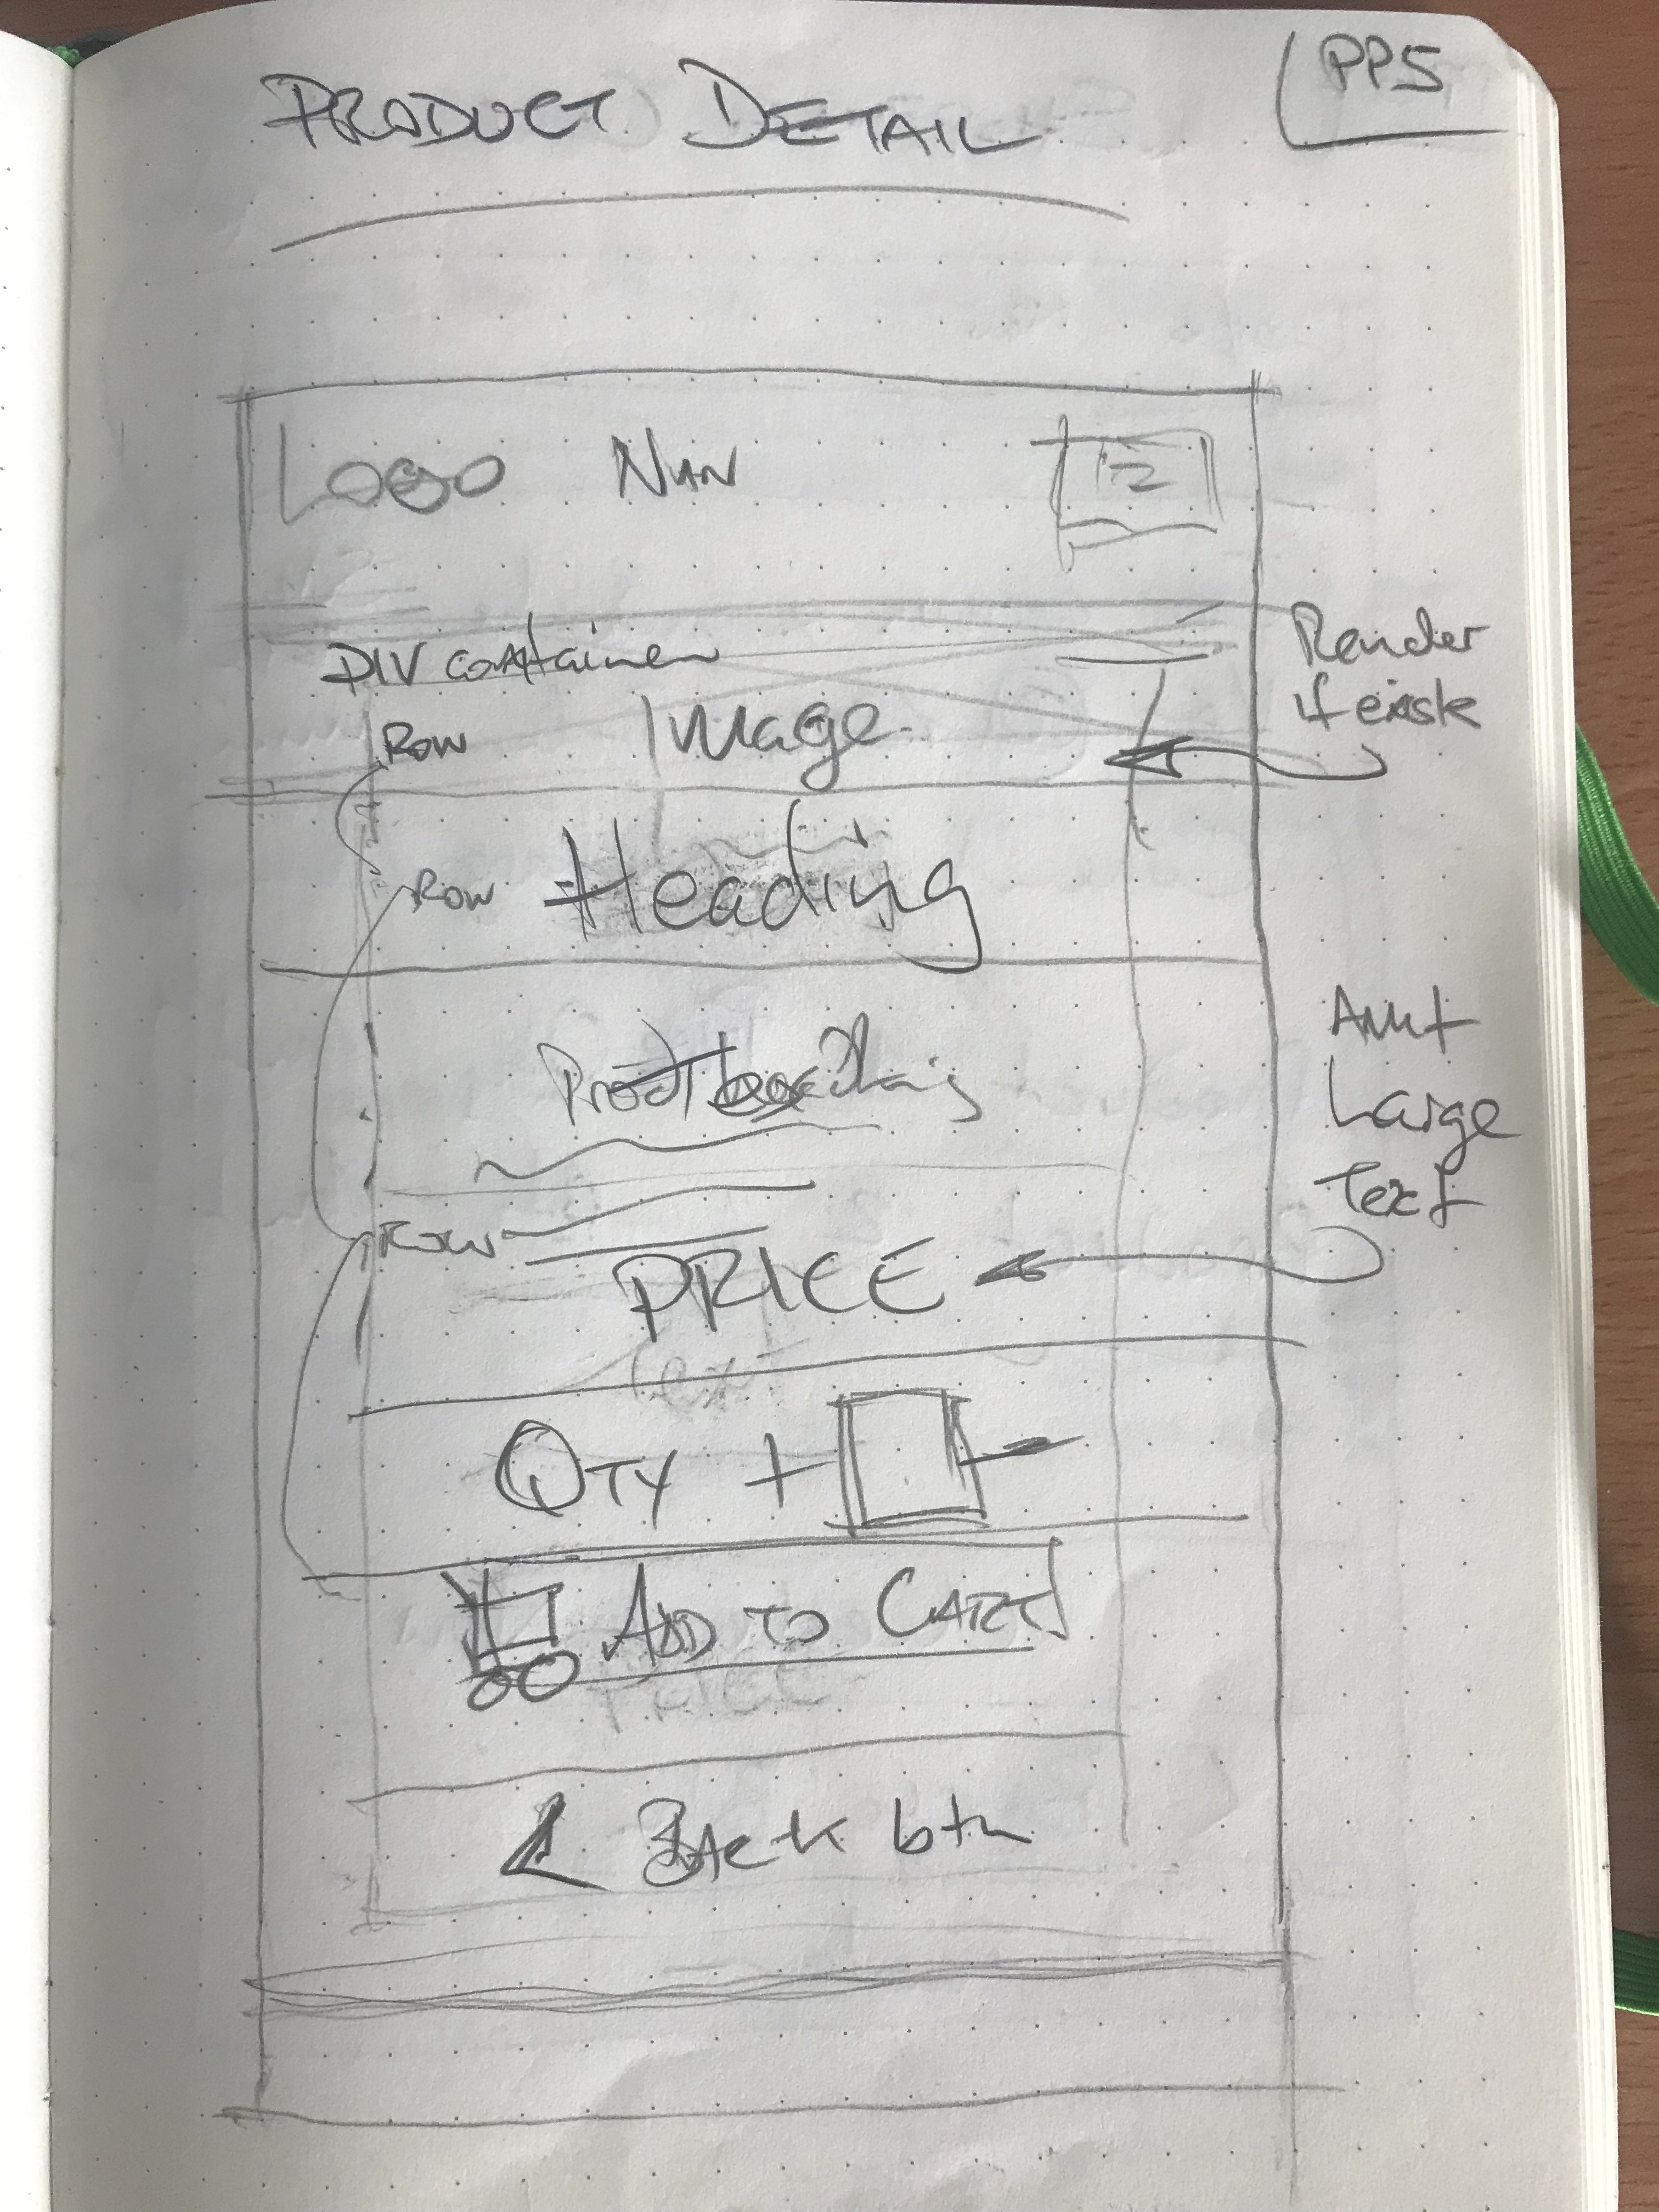 PRODUCT DETAIL
PP5
LOGO NAV
12
DIV container
Render
if exists
ROW Image
ROW Heading
Amt
Large
Text
ROW
PRICE
QTY + -
ADD TO CART
BACK btn